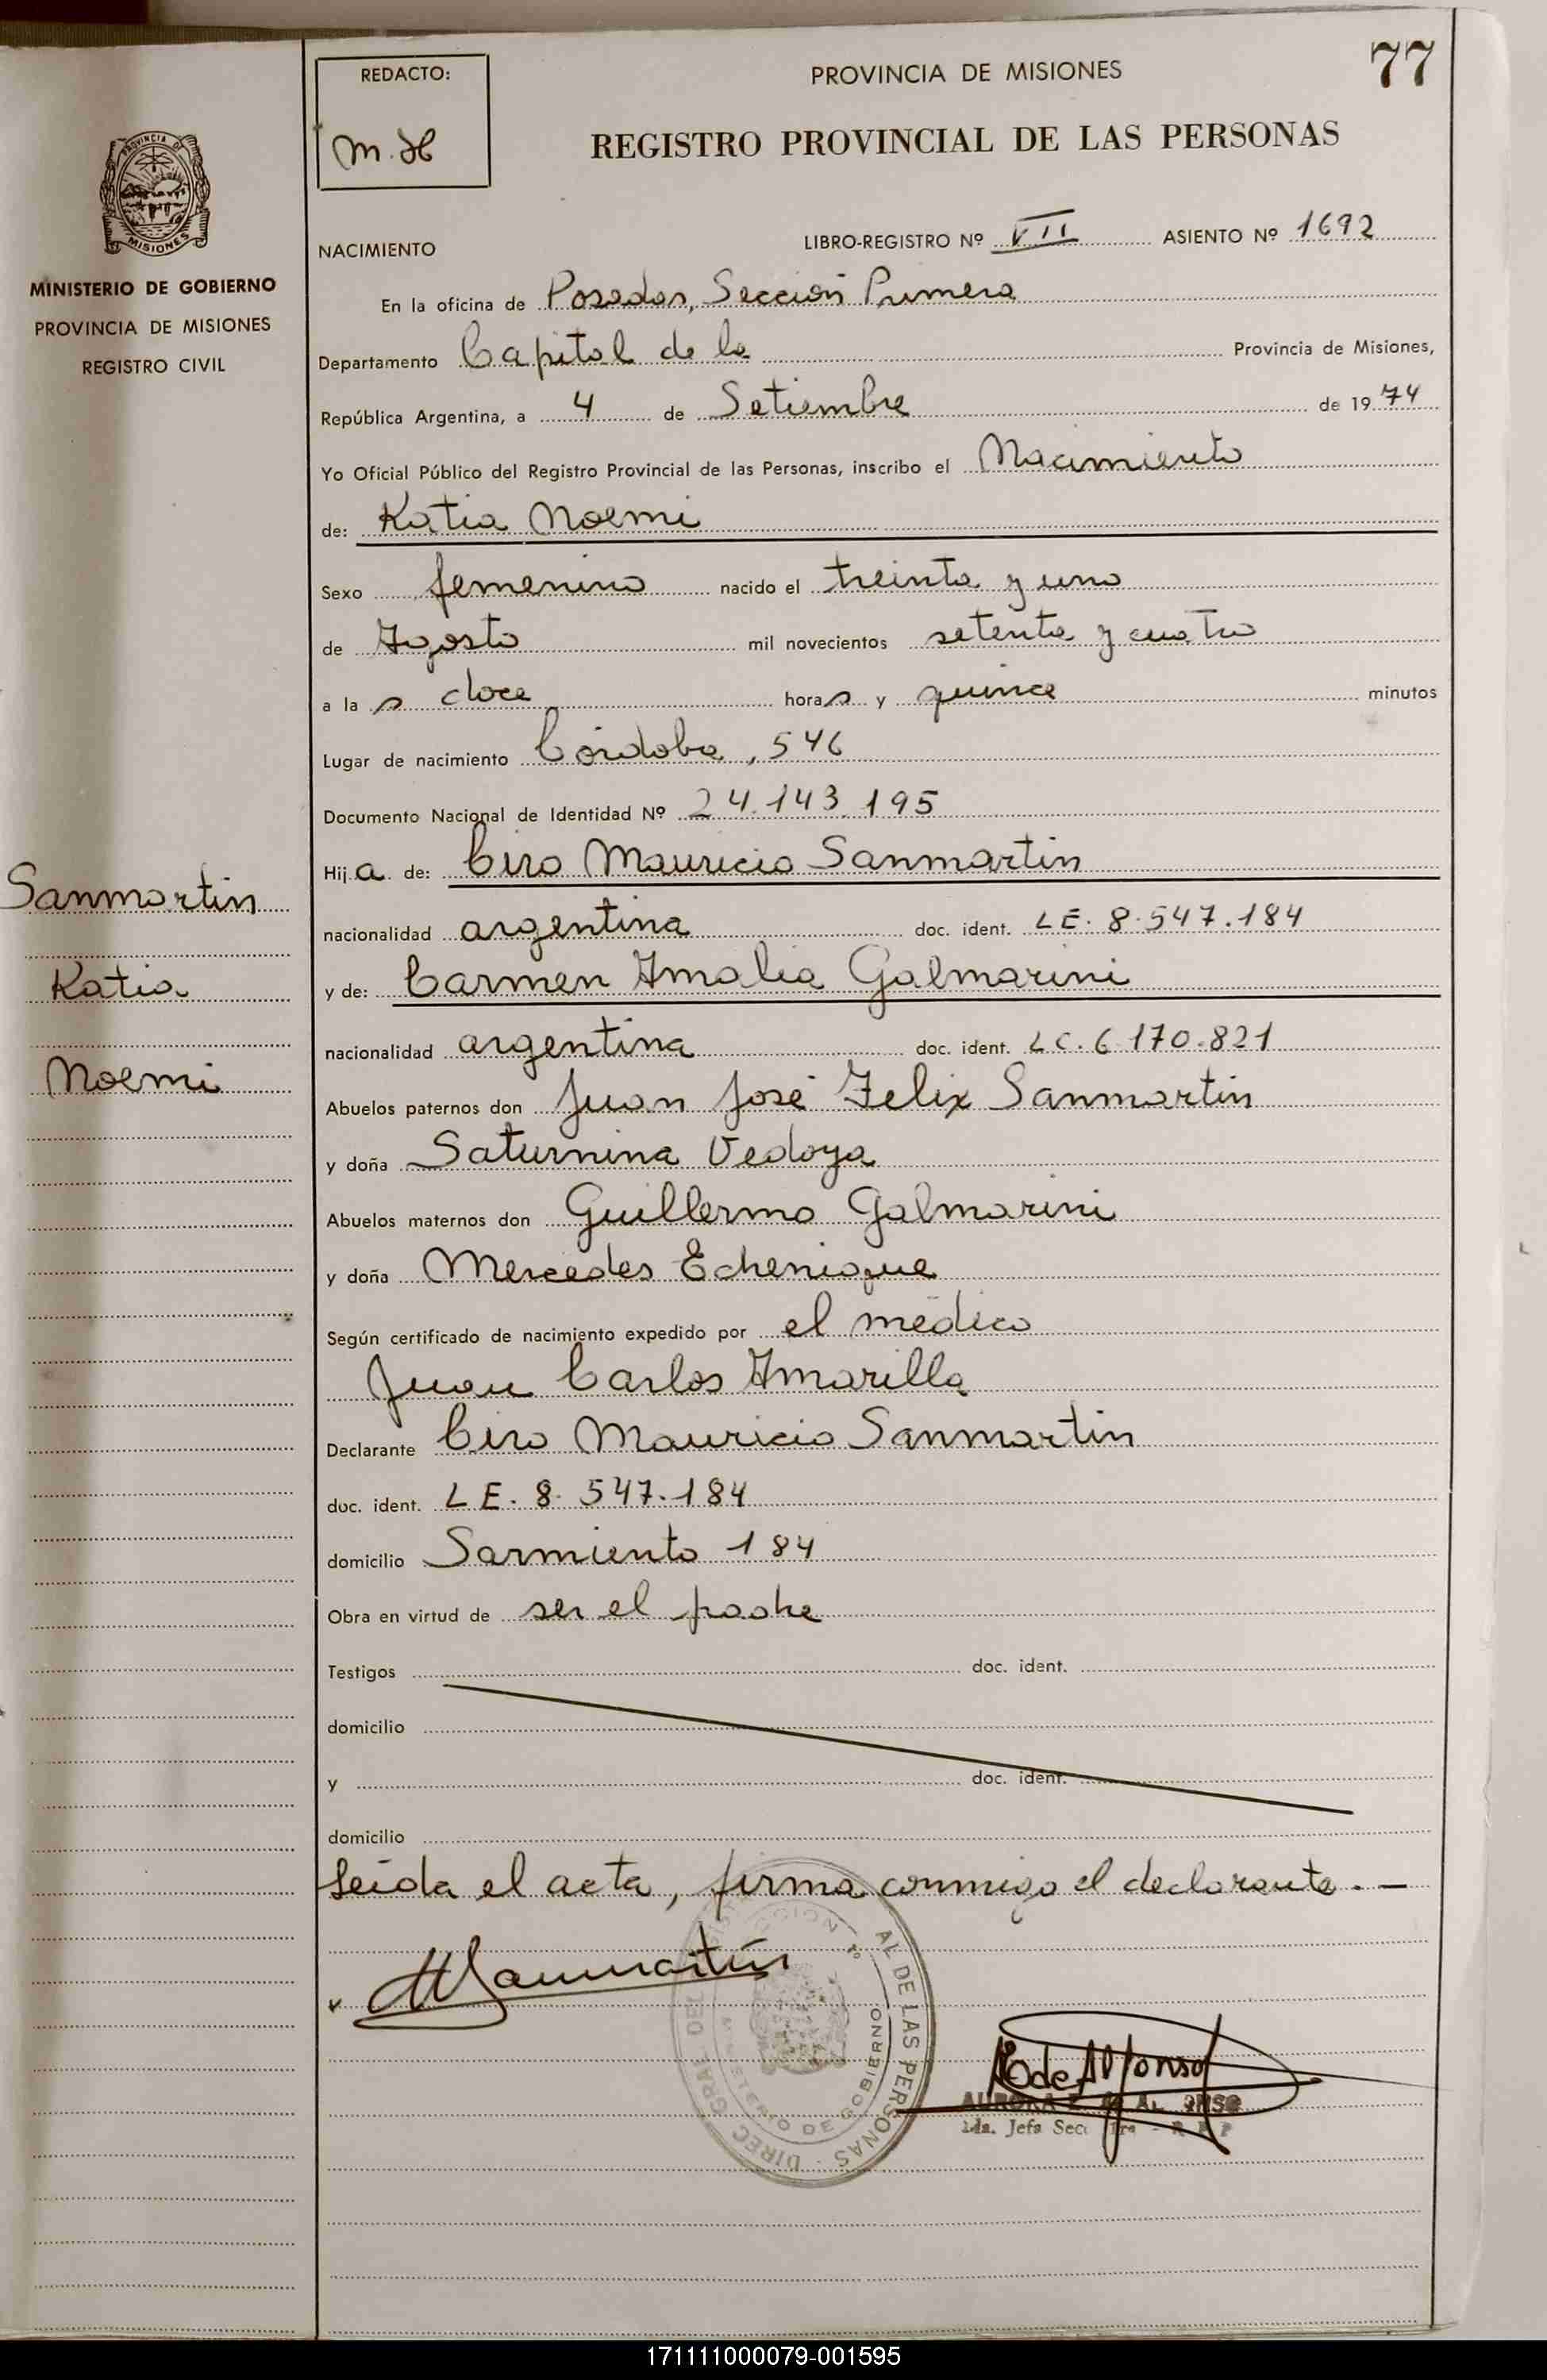 77
REDACTO:
M. H
PROVINCIA DE MISIONES
REGISTRO PROVINCIAL DE LAS PERSONAS
PROVINCIA DE
MISIONES
MINISTERIO DE GOBIERNO
PROVINCIA DE MISIONES
REGISTRO CIVIL
NACIMIENTO LIBRO-REGISTRO Nº VII ASIENTO Nº 1692
En la oficina de Posadas, Sección Primera
Departamento Capital de la Provincia de Misiones,
República Argentina, a 4 de Setiembre de 1974
Yo Oficial Público del Registro Provincial de las Personas, inscribo el Nacimiento
de: Katia Noemi
Sexo femenino nacido el treinta y uno
de Agosto mil novecientos setenta y cuatro
a la s doce hora s y quince minutos
Lugar de nacimiento Córdoba, 546
Documento Nacional de Identidad Nº 24.143.195
Hij a de: Ciro Mauricio Sanmartin
nacionalidad argentina doc. ident. LE. 8.547.184
y de: Carmen Amalia Galmarini
nacionalidad argentina doc. ident. LC. 6.170.821
Abuelos paternos don Juan José Felix Sanmartin
y doña Saturnina Vedoya
Abuelos maternos don Guillermo Galmarini
y doña Mercedes Echenique
Según certificado de nacimiento expedido por el médico
Juan Carlos Amarilla
Declarante Ciro Mauricio Sanmartin
doc. ident. LE. 8.547.184
domicilio Sarmiento 184
Obra en virtud de ser el padre
Testigos doc. ident.
domicilio
y doc. ident.
domicilio
Leída el acta, firma conmigo el declarante. —
Sanmartin
Katia
Noemi
Sanmartín
DIREC. GRAL. DEL AL DE LAS PERSONAS
MINISTERIO DE GOBIERNO
de Alfonso
AURORA
Jefa Secc
171111000079-001595